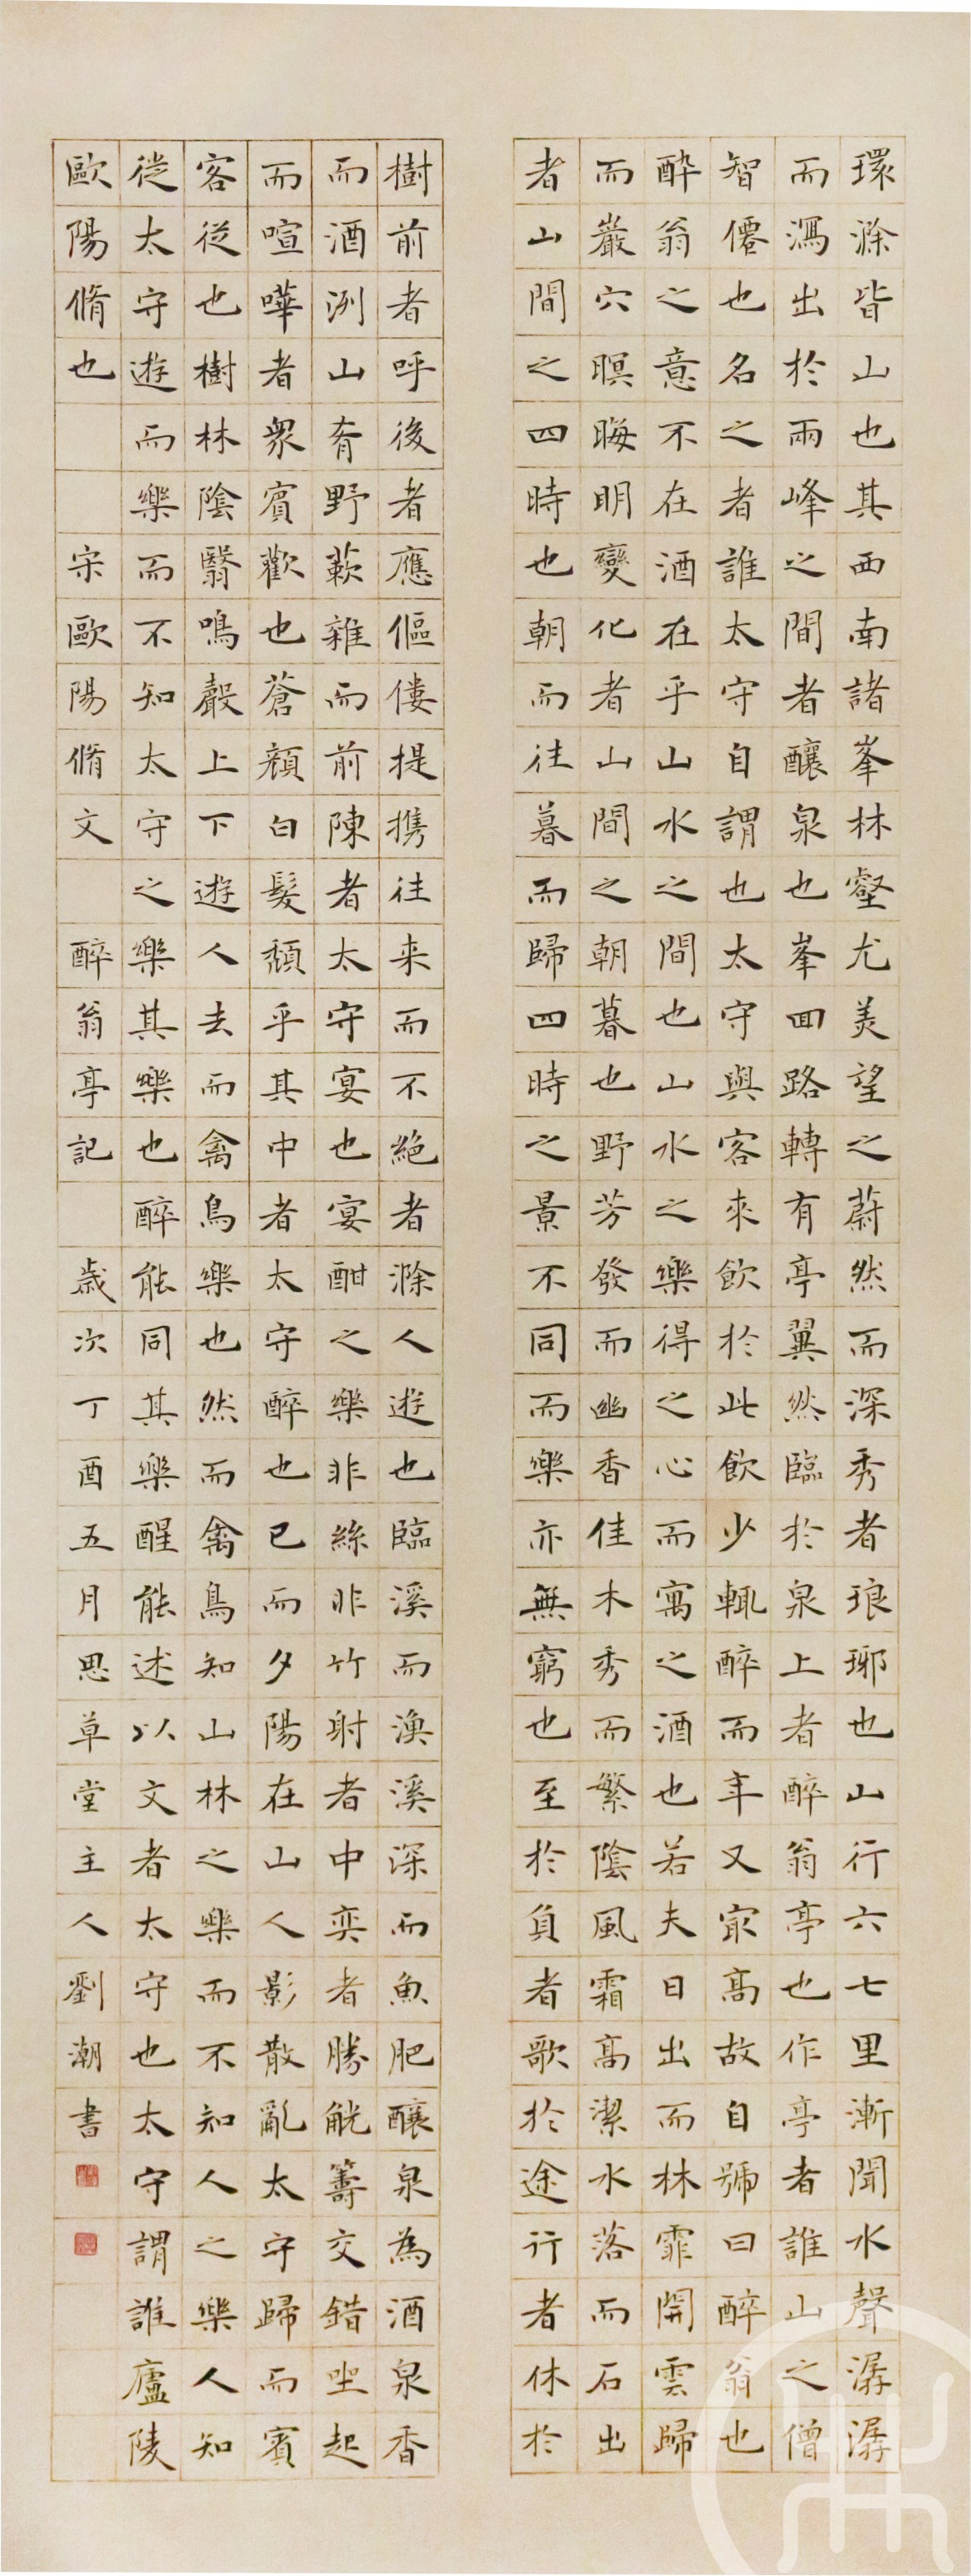 環滁皆山也其西南諸峯林壑尤美望之蔚然而深秀者琅琊也山行六七里漸聞水聲潺潺
而瀉出於兩峰之間者釀泉也峯回路轉有亭翼然臨於泉上者醉翁亭也作亭者誰山之僧
智僊也名之者誰太守自謂也太守與客來飲於此飲少輒醉而年又㝡高故自號曰醉翁也
醉翁之意不在酒在乎山水之間也山水之樂得之心而寓之酒也若夫日出而林霏開雲歸
而巖穴暝晦明變化者山間之朝暮也野芳發而幽香佳木秀而繁陰風霜高潔水落而石出
者山間之四時也朝而往暮而歸四時之景不同而樂亦無窮也至於負者歌於途行者休於
樹前者呼後者應傴僂提携往来而不絕者滁人遊也臨溪而漁溪深而魚肥釀泉為酒泉香
而酒洌山肴野蔌雜而前陳者太守宴也宴酣之樂非絲非竹射者中奕者勝觥籌交錯坐起
而喧嘩者衆賓歡也蒼顏白髮頹乎其中者太守醉也已而夕陽在山人影散亂太守歸而賓
客從也樹林陰翳鳴聲上下遊人去而禽鳥樂也然而禽鳥知山林之樂而不知人之樂人知
從太守遊而樂而不知太守之樂其樂也醉能同其樂醒能述以文者太守也太守謂誰廬陵
歐陽脩也 宋歐陽脩文 醉翁亭記 歲次丁酉五月思草堂主人劉潮書